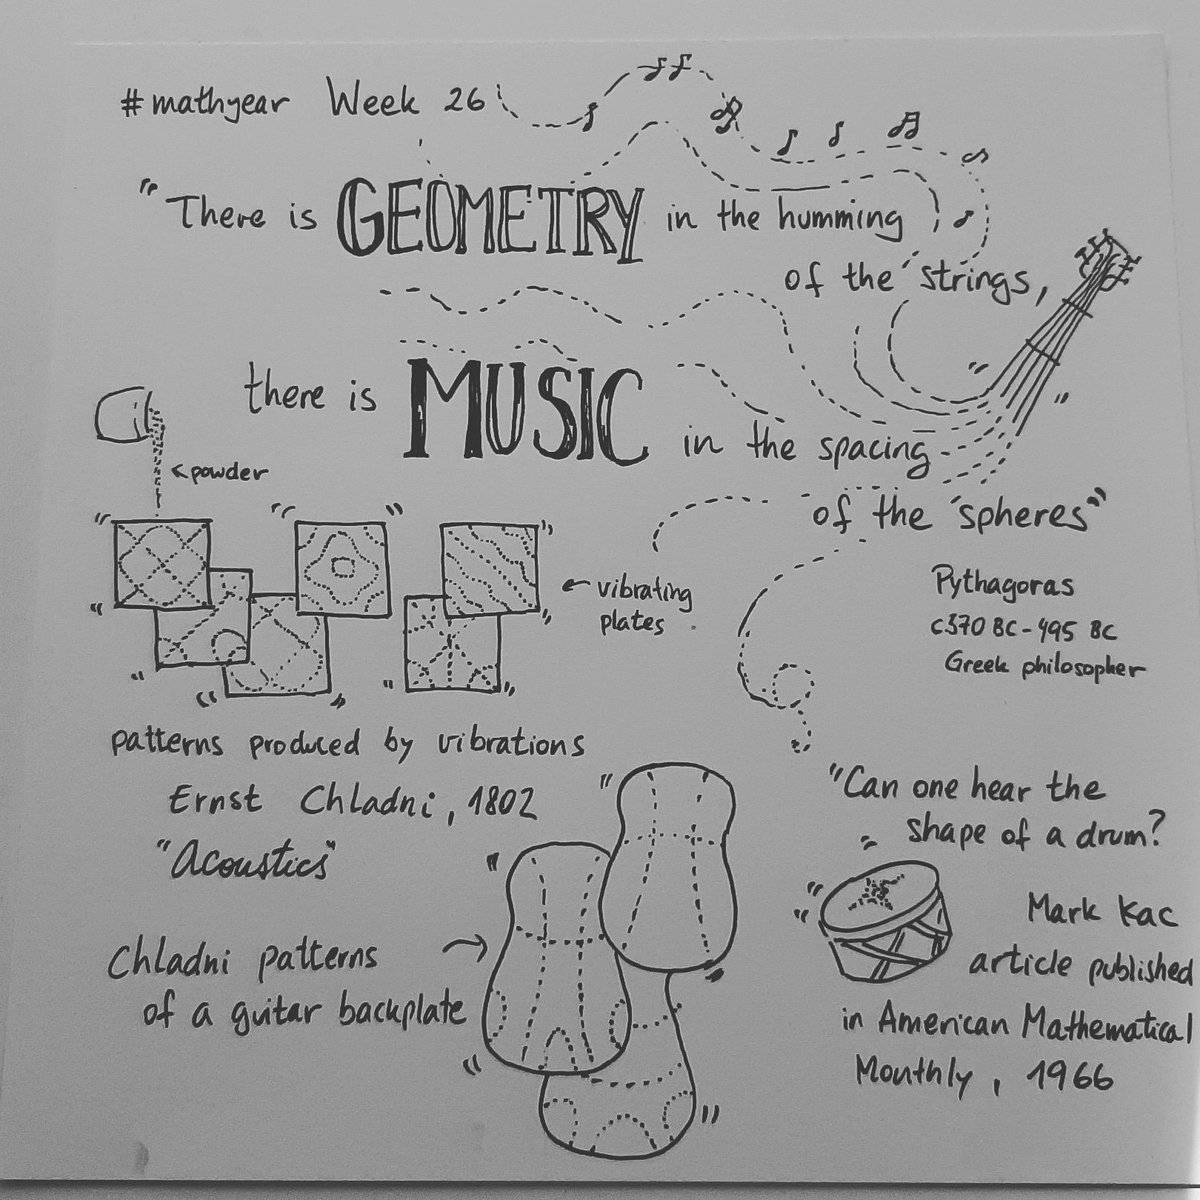 #mathyear Week 26
"There is GEOMETRY in the humming
of the strings,
there is MUSIC in the spacing
of the spheres"
Pythagoras
c370 BC - 495 BC
Greek philosopher
powder
vibrating
plates
patterns produced by vibrations
Ernst Chladni, 1802
"Acoustics"
Chladni patterns
of a guitar backplate
"Can one hear the
shape of a drum?
Mark Kac
article published
in American Mathematical
Monthly, 1966